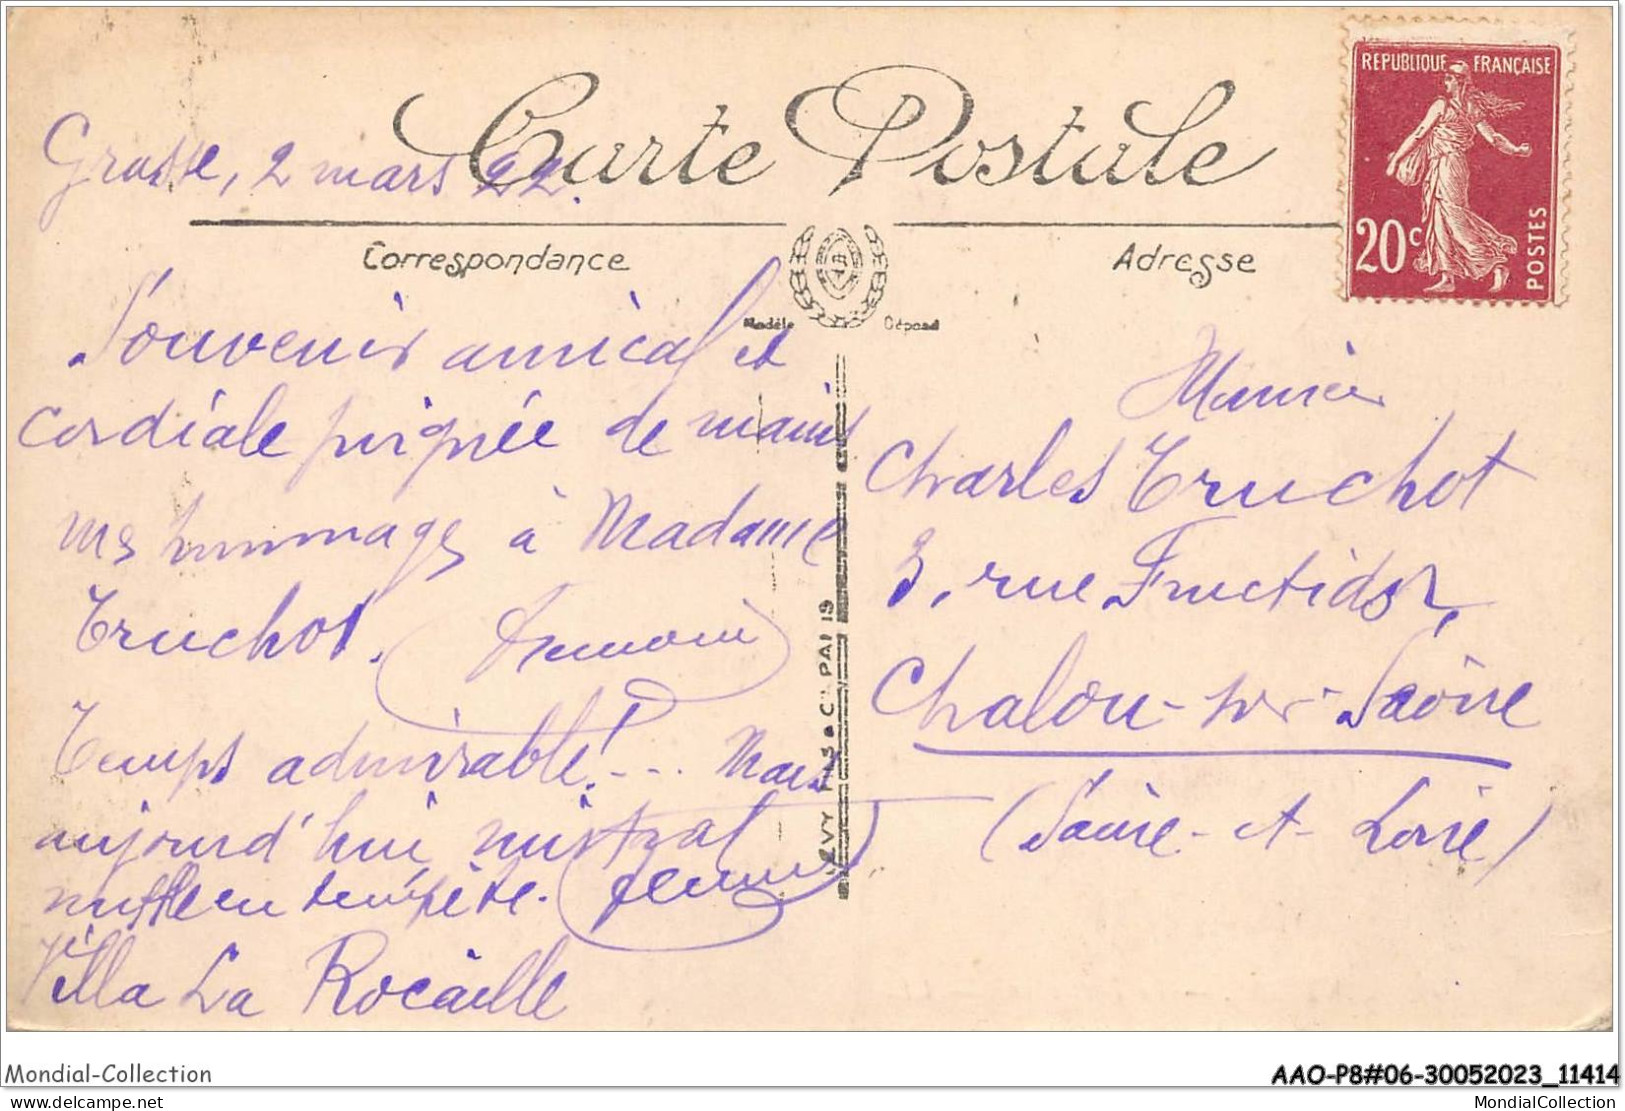 Carte Postale
RÉPUBLIQUE FRANÇAISE
20c
POSTES
Grasse, 2 mars 22.
Correspondance
Adresse
Modèle Déposé
Souvenir amical et
cordiale poignée de mains
mes hommages à Madame
Truchot.
Temps admirable!... Mais
aujourd'hui mistral
souffle en tempête.
Villa La Rocaille
LEVY FILS & Cie PARIS
Monsieur
Charles Truchot
3, rue Fructidor,
Chalon-sur-Saône
(Saône-et-Loire)
Mondial-Collection
AAO-P8#06-30052023_11414
delcampe.net
MondialCollection